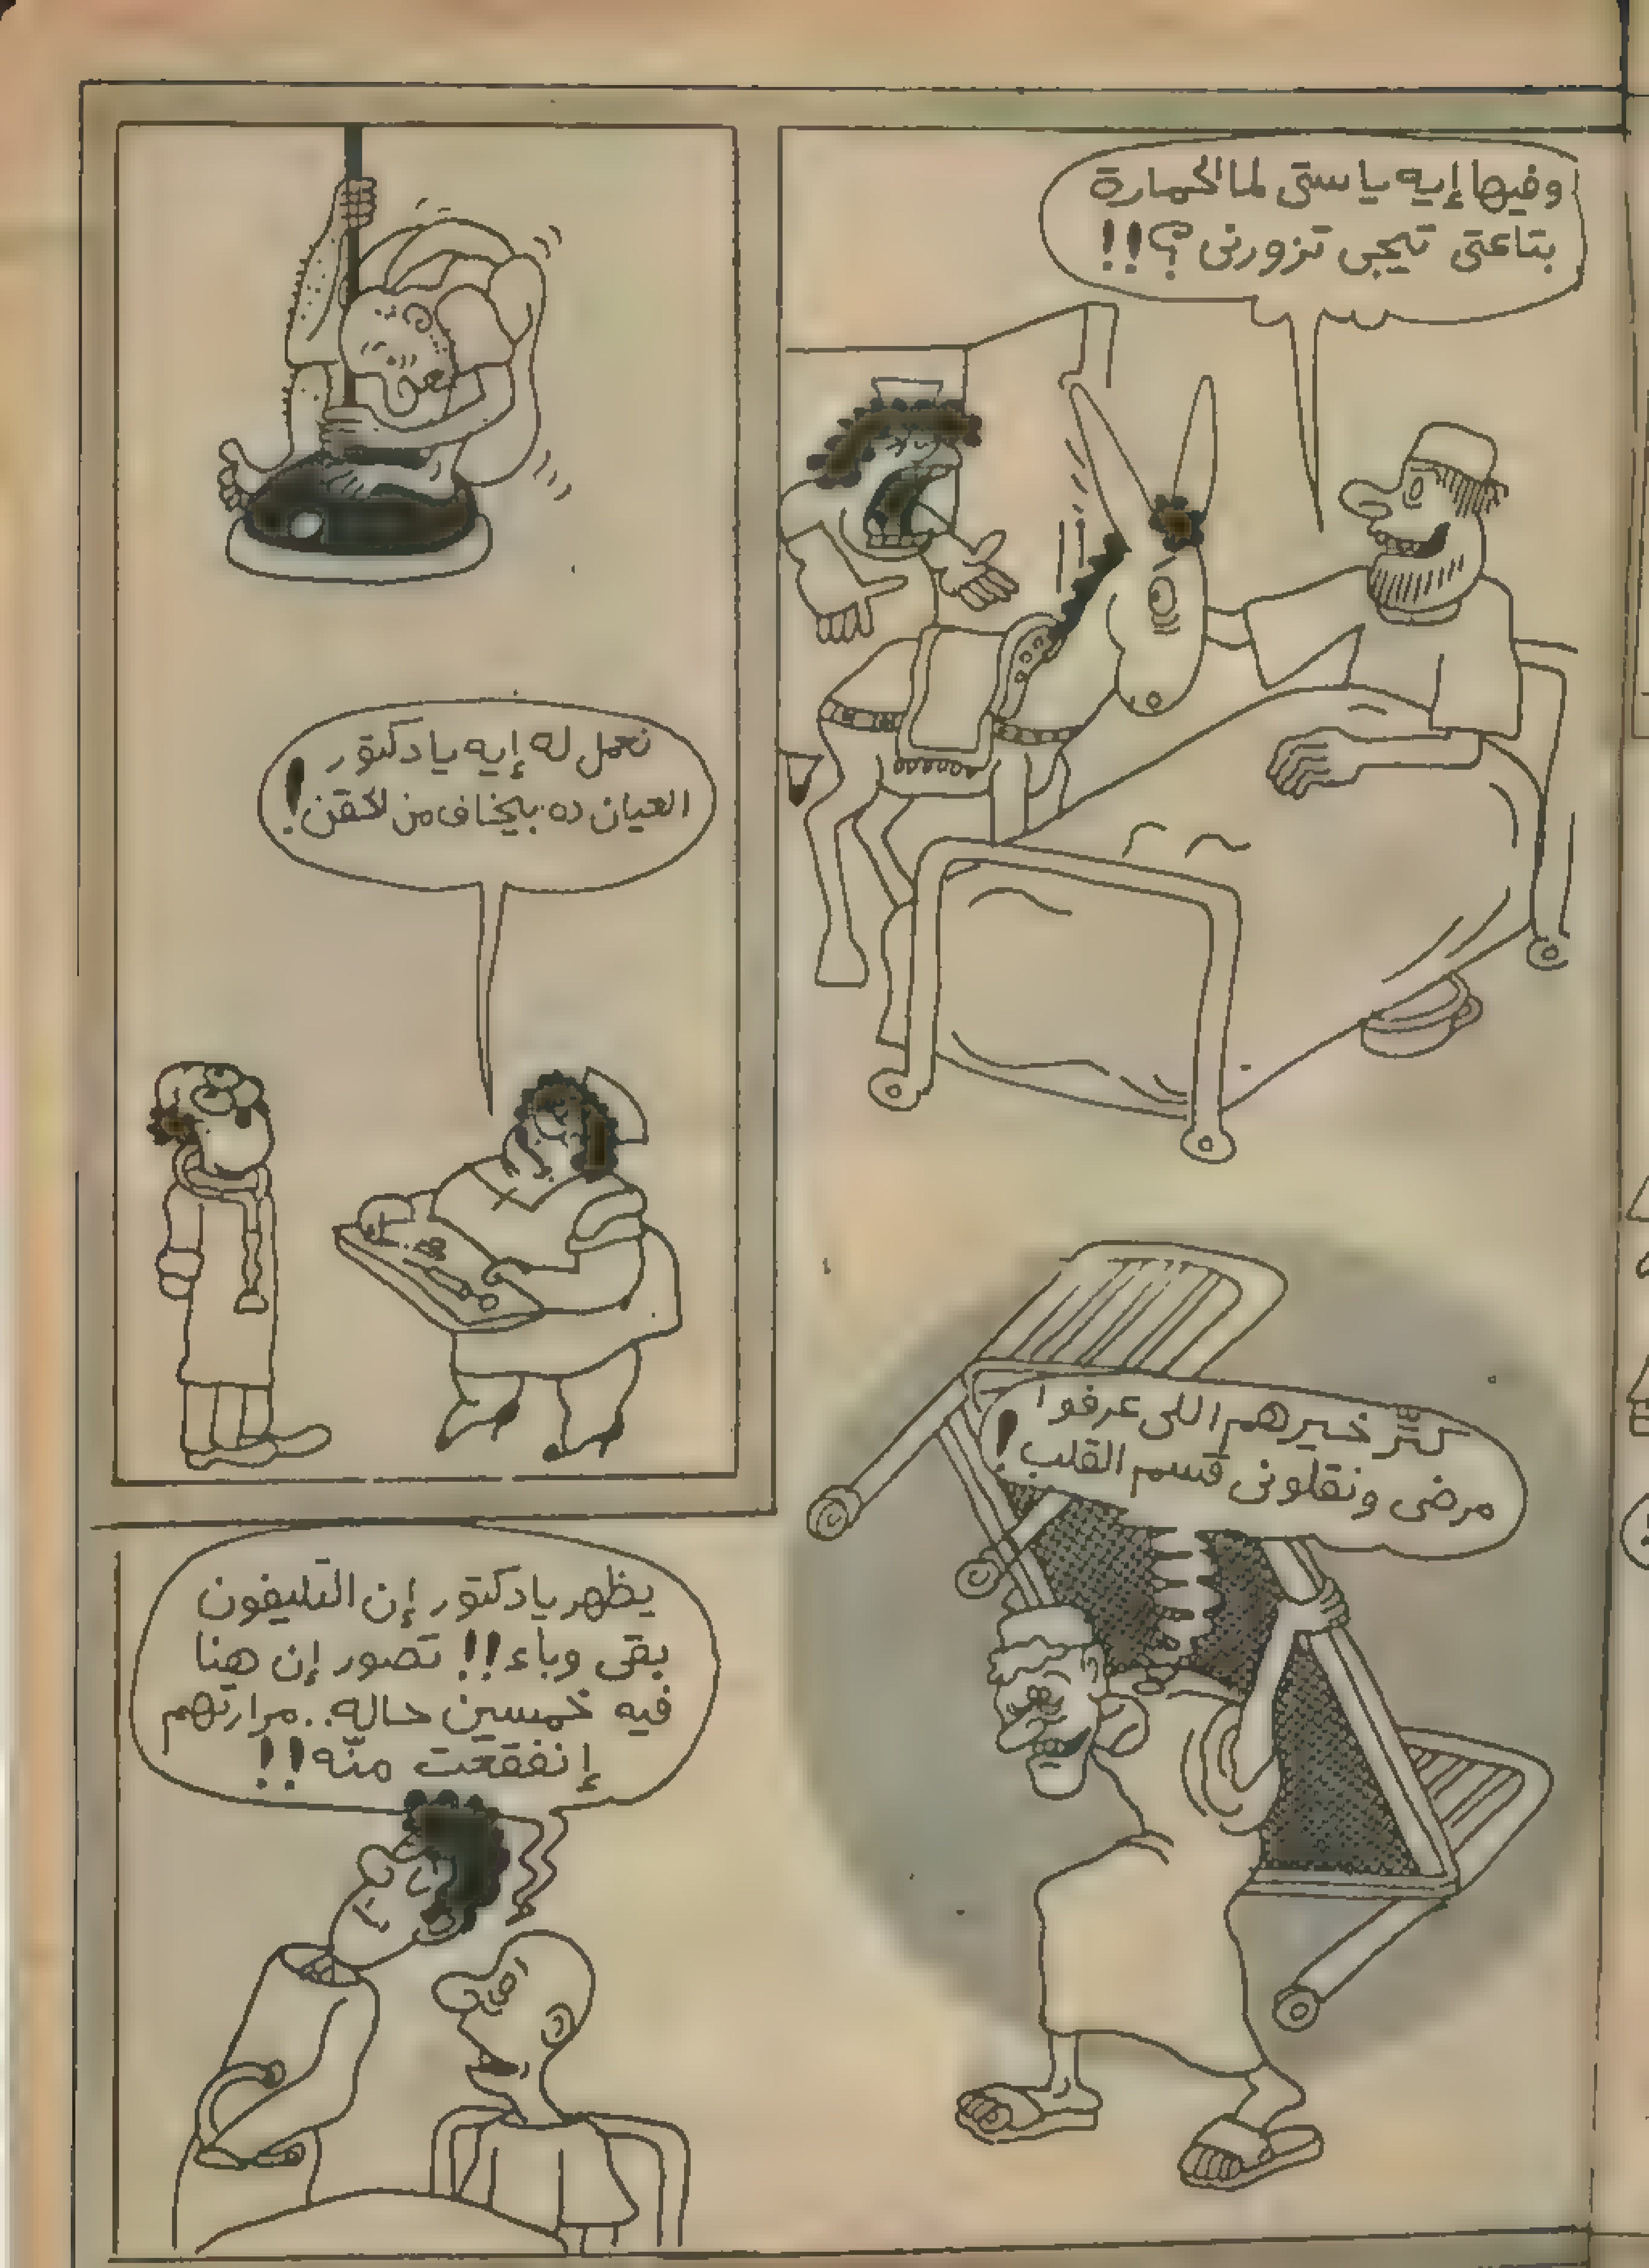 وفيها إيه ياستى لما الحمارة
بتاعتى تيجى تزورنى ؟!!
نعمل له إيه يا دكتور
العيان ده بيخاف من الحقن !
كتّر خيرهم اللى عرفوا
مرضى ونقلونى قسم القلب !
يظهر يا دكتور إن التليفون
بقى وباء !! تصور إن هنا
فيه خمسين حاله .. مرارتهم
إنفقعت منّه !!